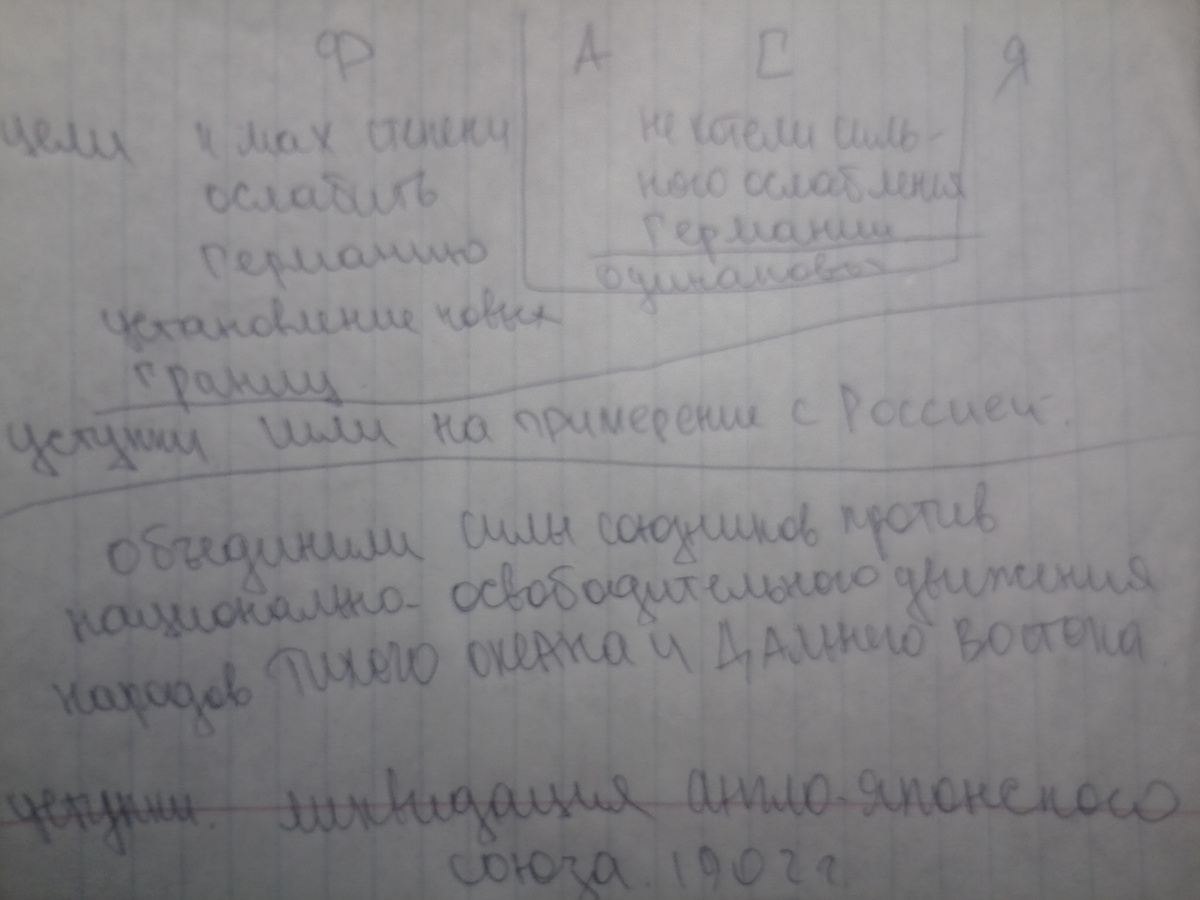 Ф А С Я
цели и мах степени не хотели силь-
ослабить ного ослабления
Германию Германии
одинаковы
установление новых
границ
уступки шли на примерение с Россией.
объединили силы союзников против
национально-освободительного движения
народов Тихого океана и Дальнего Востока.
уступки. ликвидация англо-японского
союза. 1902 г.